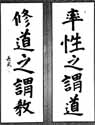 率性之謂道
修道之謂教